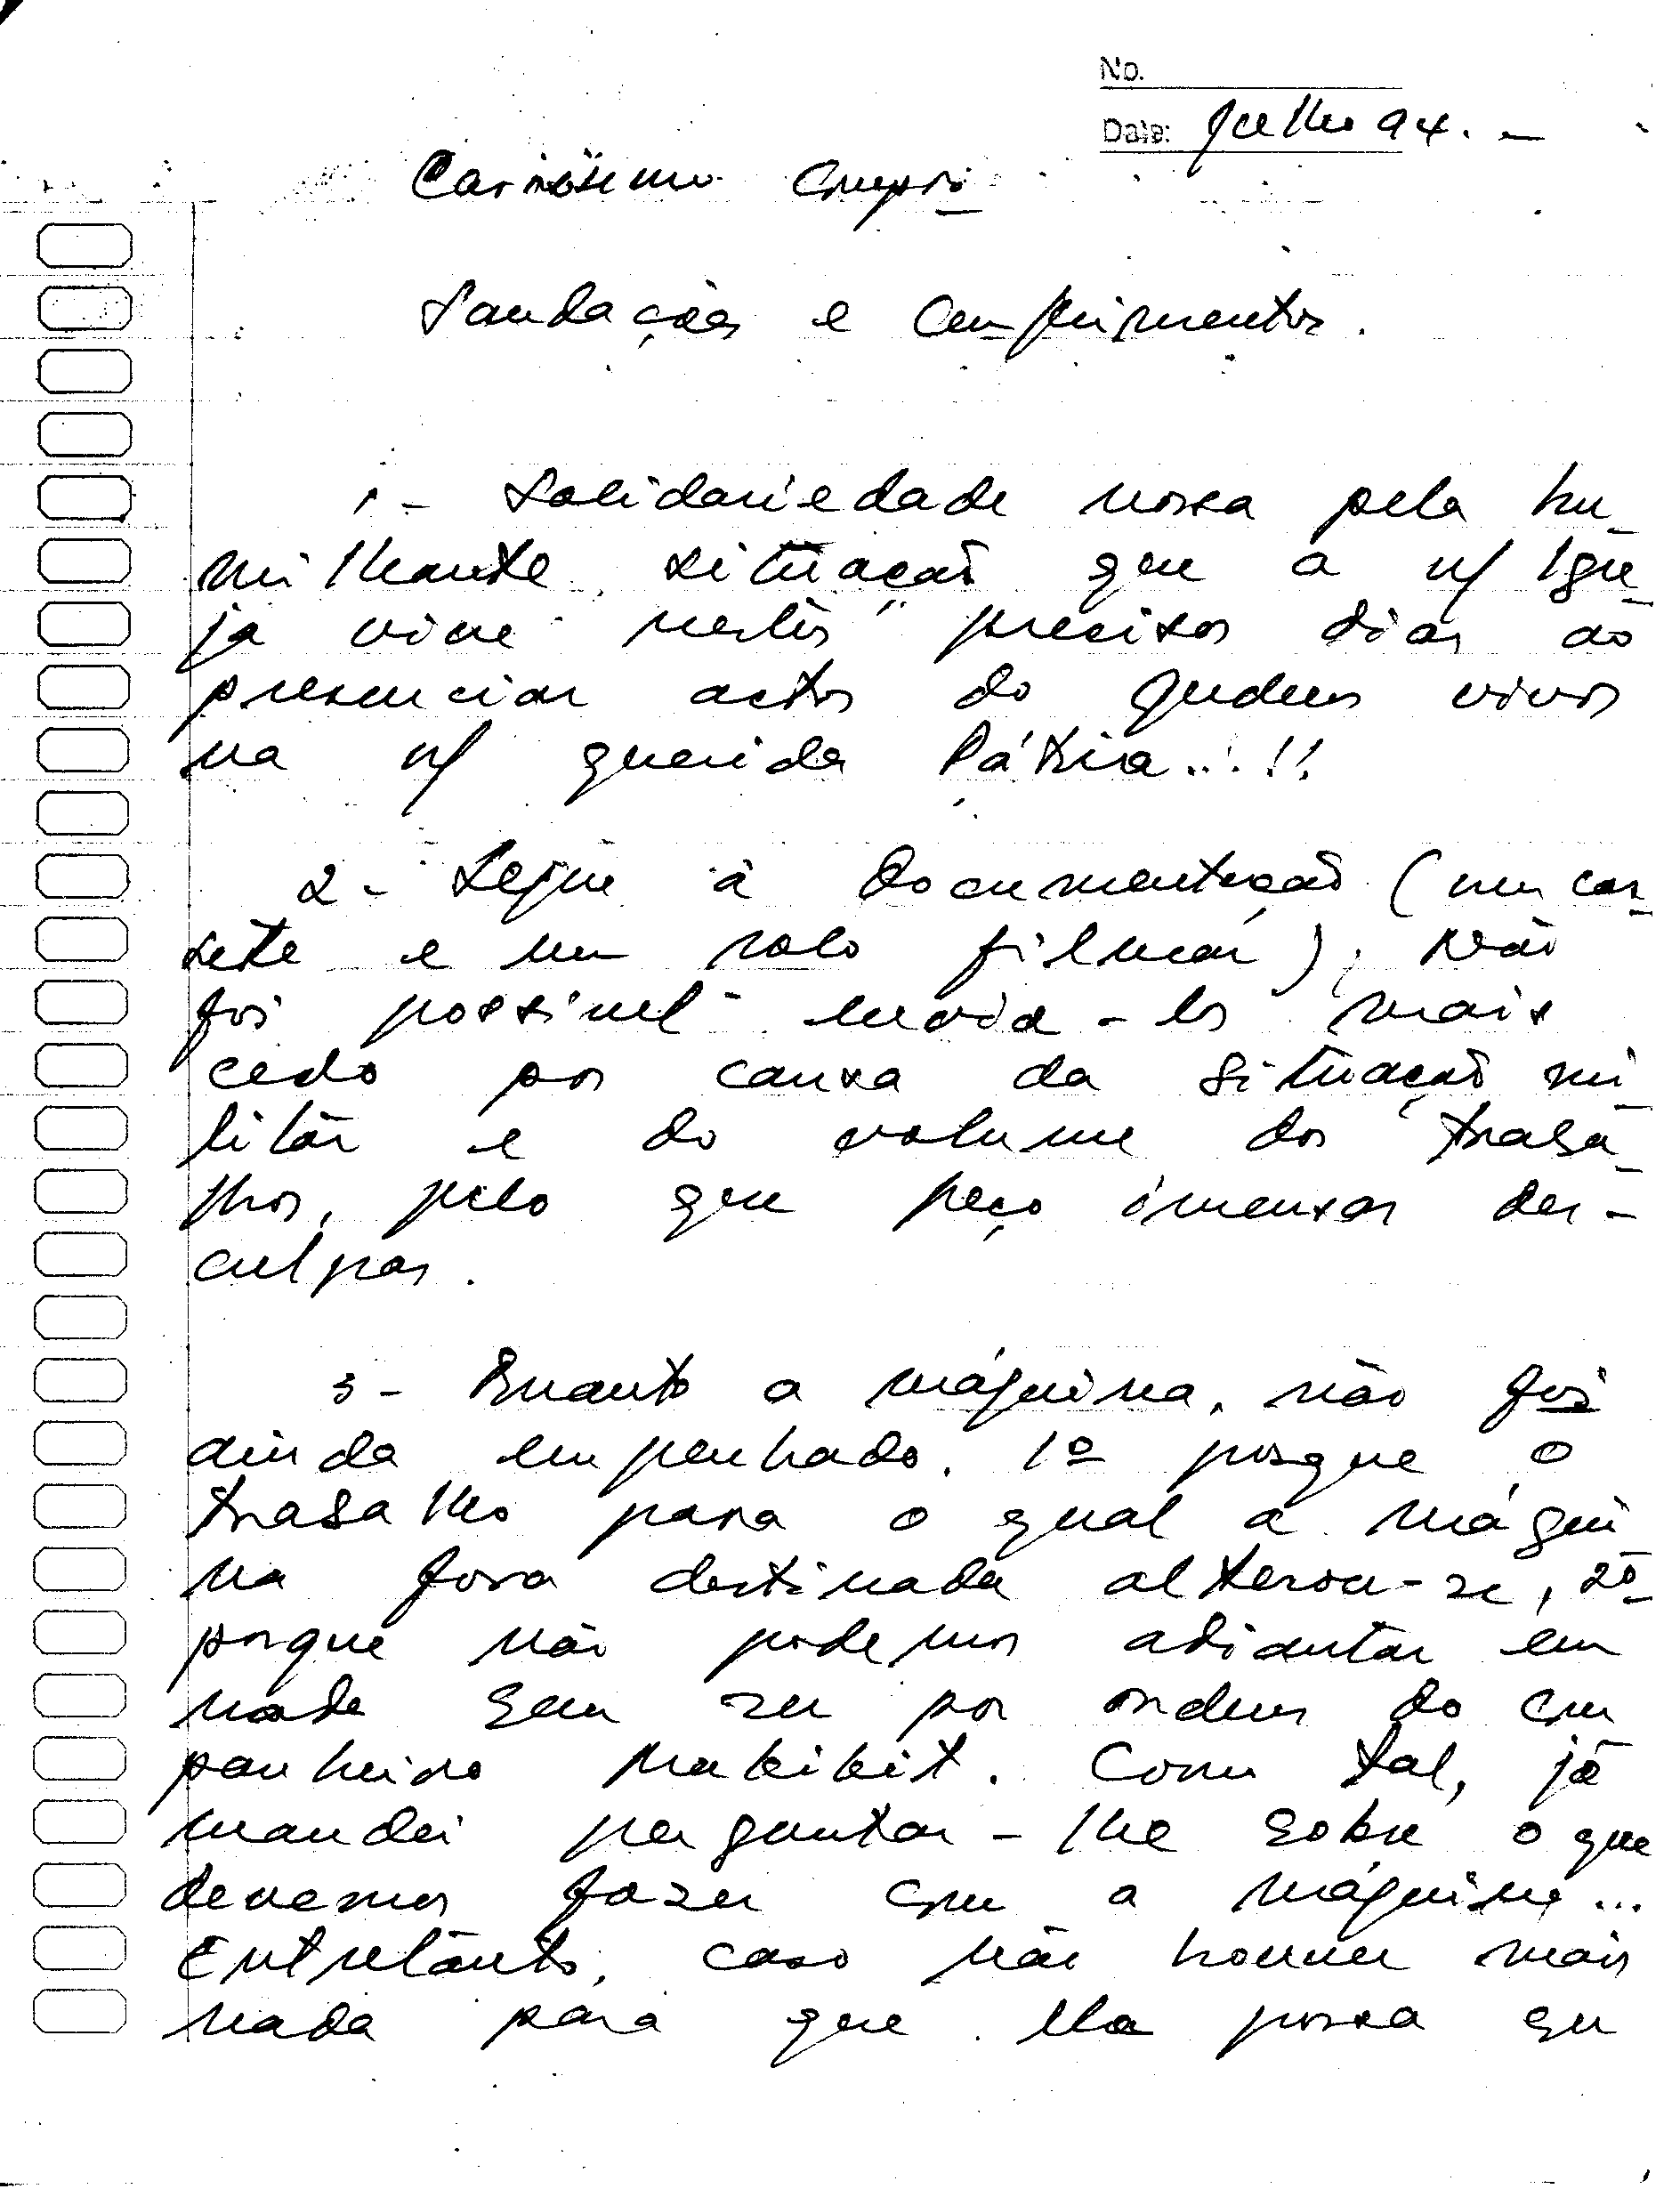 No.
Date: Julho 94. -
Caríssimo Compº
Saudações e Cumprimentos.
1- Solidariedade nossa pela hu-
milhante situação que a n/ Igre-
ja vive nestes precisos dias ao
presenciar actos do Judeus vivos
na n/ querida Pátria...!!
2- Segue a documentação (um cas-
sete e um rolo filmar). Não
foi possivel envia-los mais
cedo por causa da situação mi-
litar e do volume dos traba-
lhos, pelo que peço imensas des-
culpas.
3- Quanto a máquina, não foi
ainda empenhado. 1º porque o
trabalho para o qual a máqui-
na fora destinada alterou-se, 2º
porque não podemos adiantar em
nada sem ser por ordem do com
panheiro Mukikit. Como tal, já
mandei perguntar-lhe sobre o que
devemos fazer com a máquina...
Entretanto, caso não houver mais
nada para que ela possa ser